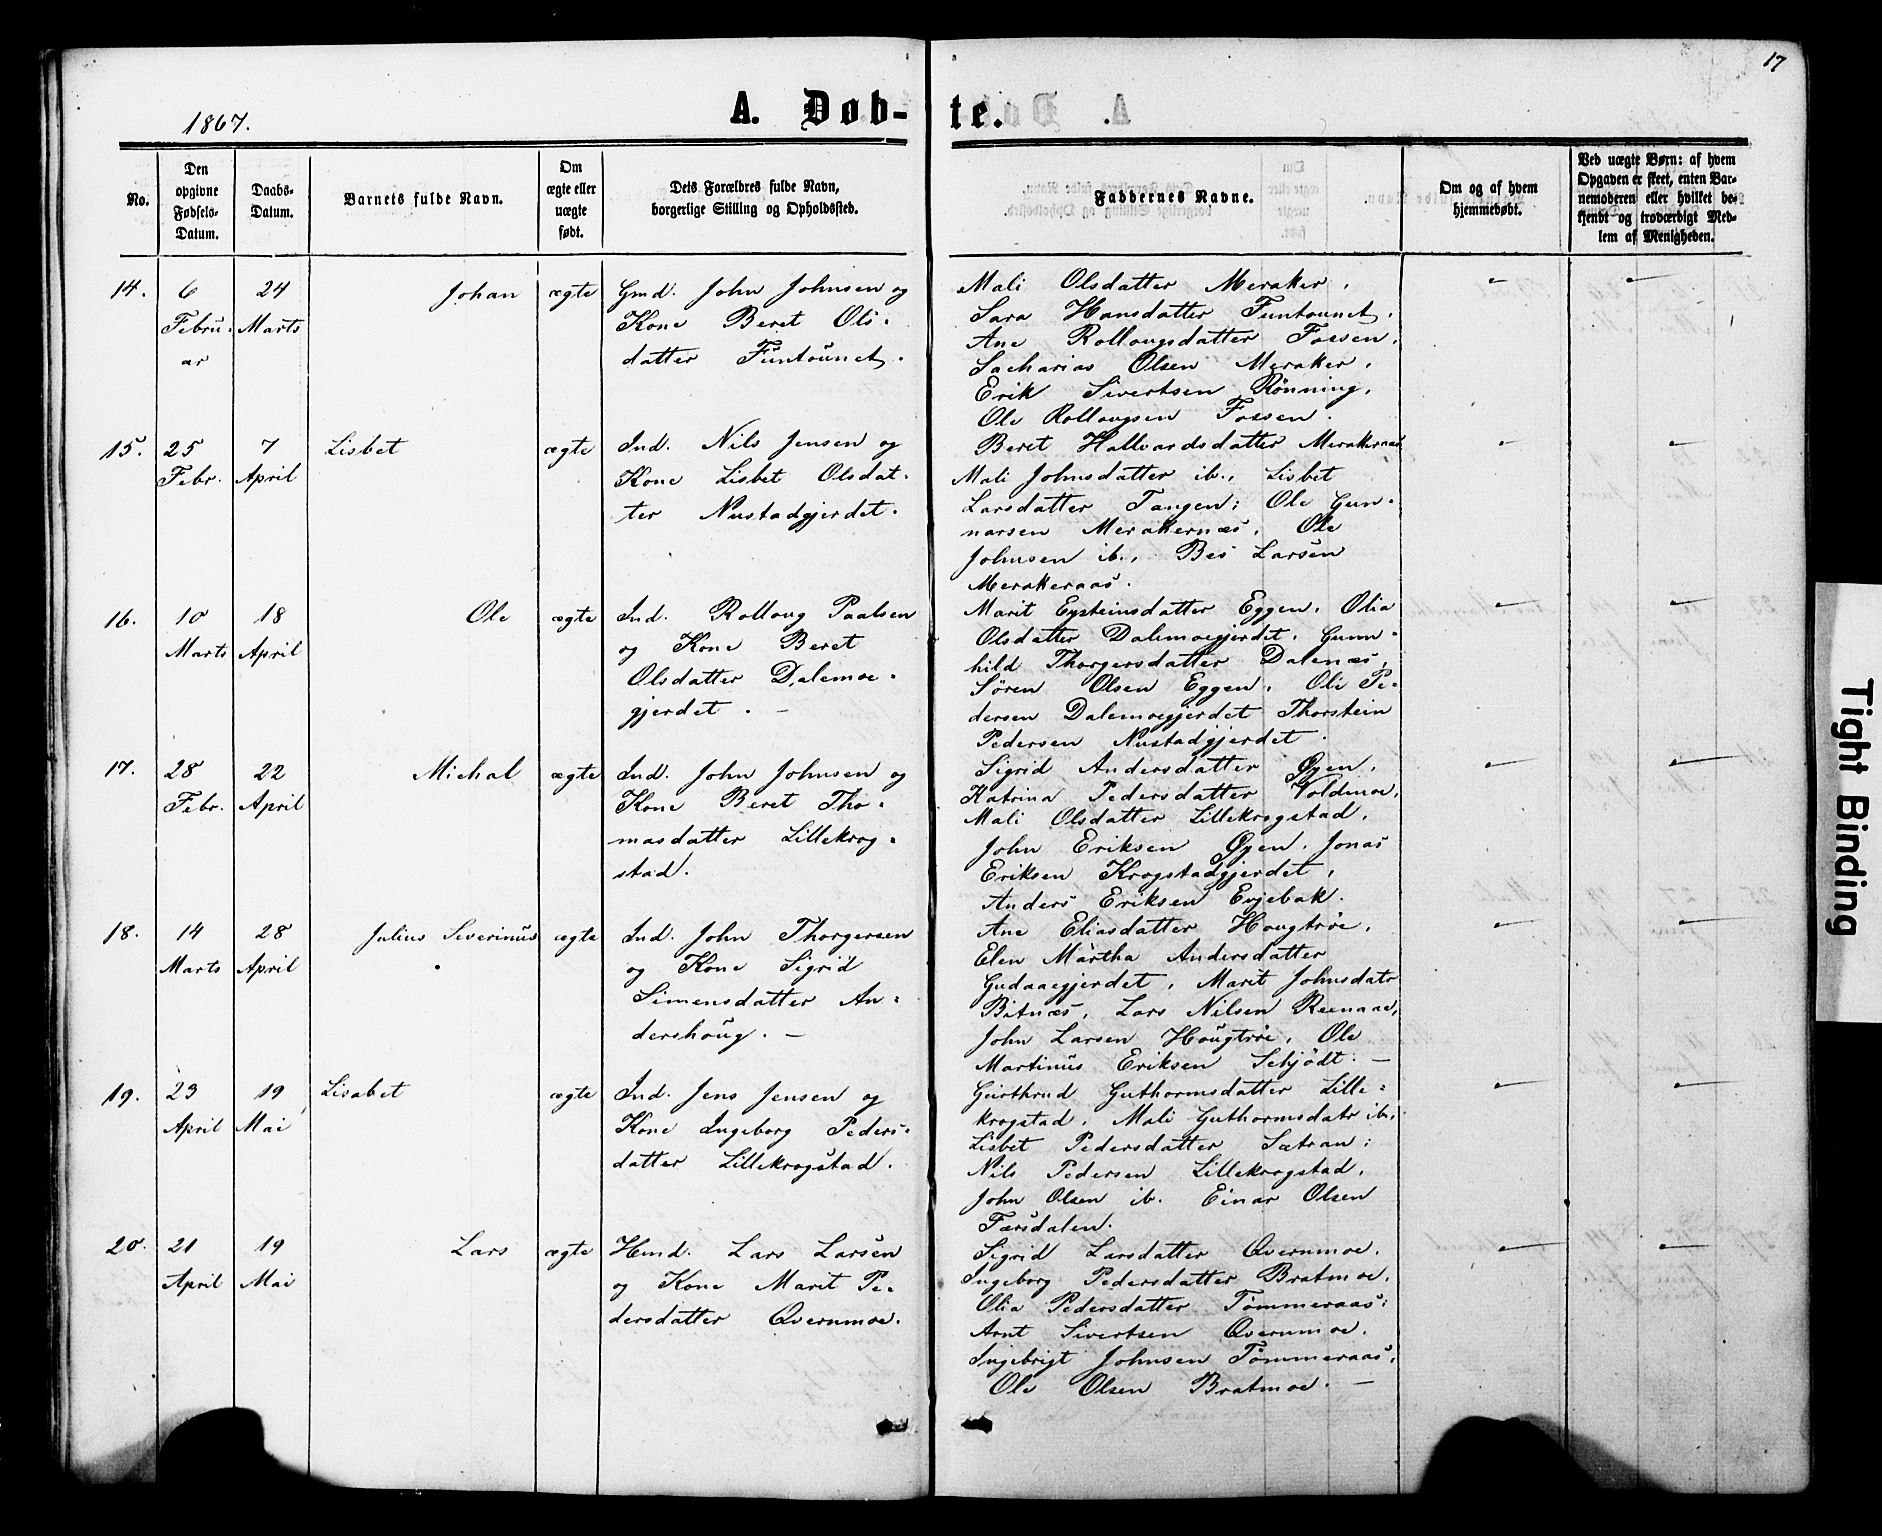 17
1867.
A. Døb-te.
No.
Den opgivne Fødsels-Datum.
Daabs-Datum.
Barnets fulde Navn.
Om ægte eller uægte født.
Dets Forældres fulde Navn, borgerlige Stilling og Opholdssted.
Faddernes Navne.
Om og af hvem hjemmedøbt.
Ved uægte Børn: af hvem Opgaven er skeet, enten Barnemoderen eller hvilket bekjendt og troværdigt Medlem af Menigheden.
14. 6 Februar 24 Marts Johan ægte
Gmd. John Johnsen og
Kone Beret Ols-
datter Funtounet.
Mali Olsdatter Meraker,
Sara Hansdatter Funtounet,
Ane Rollougsdatter Fossen,
Sacharias Olsen Meraker,
Erik Sivertsen Rønning,
Ole Rollougsen Fossen.
15. 25 Febr. 7 April Lisbet ægte
Ind. Nils Jensen og
Kone Lisbet Olsdat-
ter Nustadgjerdet.
Beret Hallvardsdatter Merakeraas
Mali Johnsdatter ib., Lisbet
Larsdatter Tangen; Ole Gun-
narsen Merakernæs, Ole
Johnsen ib., Bes Larsen
Merakeraas.
16. 10 Marts 18 April Ole ægte
Ind. Rolloug Paalsen
og Kone Beret
Olsdatter Dalemoe-
gjerdet. -
Marit Eysteinsdatter Eggen, Olia
Olsdatter Dalemoegjerdet, Gunn-
hild Thorgersdatter Dalenæs,
Søren Olsen Eggen, Ole Pe-
dersen Dalemoegjerdet Thorstein
Pedersen Nustadgjerdet.
17. 28 Febr. 22 April Michal ægte
Ind. John Johnsen og
Kone Beret Tho-
masdatter Lillekrog-
stad.
Sigrid Andersdatter Øyen,
Katrina Pedersdatter Voldmoe,
Mali Olsdatter Lillekrogstad,
John Eriksen Øyen, Jonas
Eriksen Krogstadgjerdet,
Anders Eriksen Evjebak.
18. 14 Marts 28 April Julius Severinus ægte
Ind. John Thorgersen
og Kone Sigrid
Simensdatter An-
dershoug. -
Ane Eliasdatter Hougtrøe,
Elen Märtha Andersdatter
Gudaaegjerdet, Marit Johnsdatr
Bitnæs, Lars Nilsen Reenaae,
John Larsen Hougtrøe, Ole
Martinus Eriksen Schjødt. -
19. 23 April 19 Mai Lisabet ægte
Ind. Jens Jensen og
Kone Ingeborg Peders-
datter Lillekrogstad.
Geirthrud Guthormsdatter Lille-
krogstad, Mali Guthormsdatr ib.,
Lisbet Pedersdatter Sætran;
Nils Pedersen Lillekrogstad,
John Olsen ib. Einar Olsen
Færsdalen.
20. 21 April 19 Mai Lars ægte
Hmd. Lars Larsen
og Kone Marit Pe-
dersdatter Qvernmoe.
Sigrid Larsdatter Qvernmoe,
Ingeborg Pedersdatter Bratmoe,
Olia Pedersdatter Tømmeraas;
Arnt Sivertsen Qvernmoe,
Ingebrigt Johnsen Tømmeraas,
Ole Olsen Bratmoe. -
Tight Binding